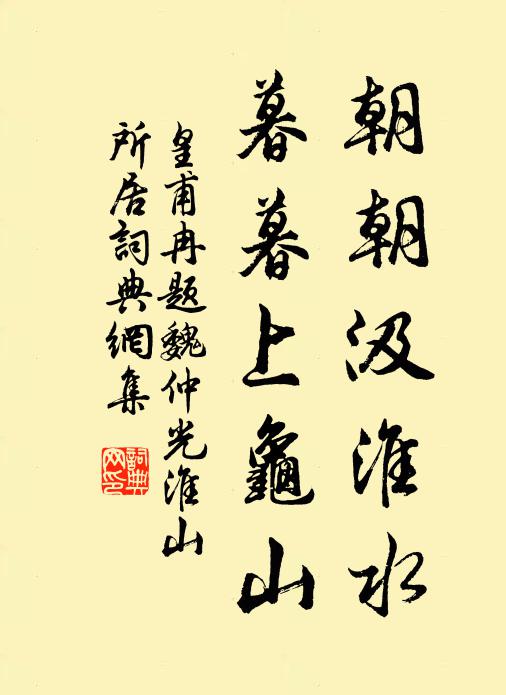 朝朝汲淮水
暮暮上龜山
皇甫冉題魏仲光淮山
所居詞典網集
詞典
网印